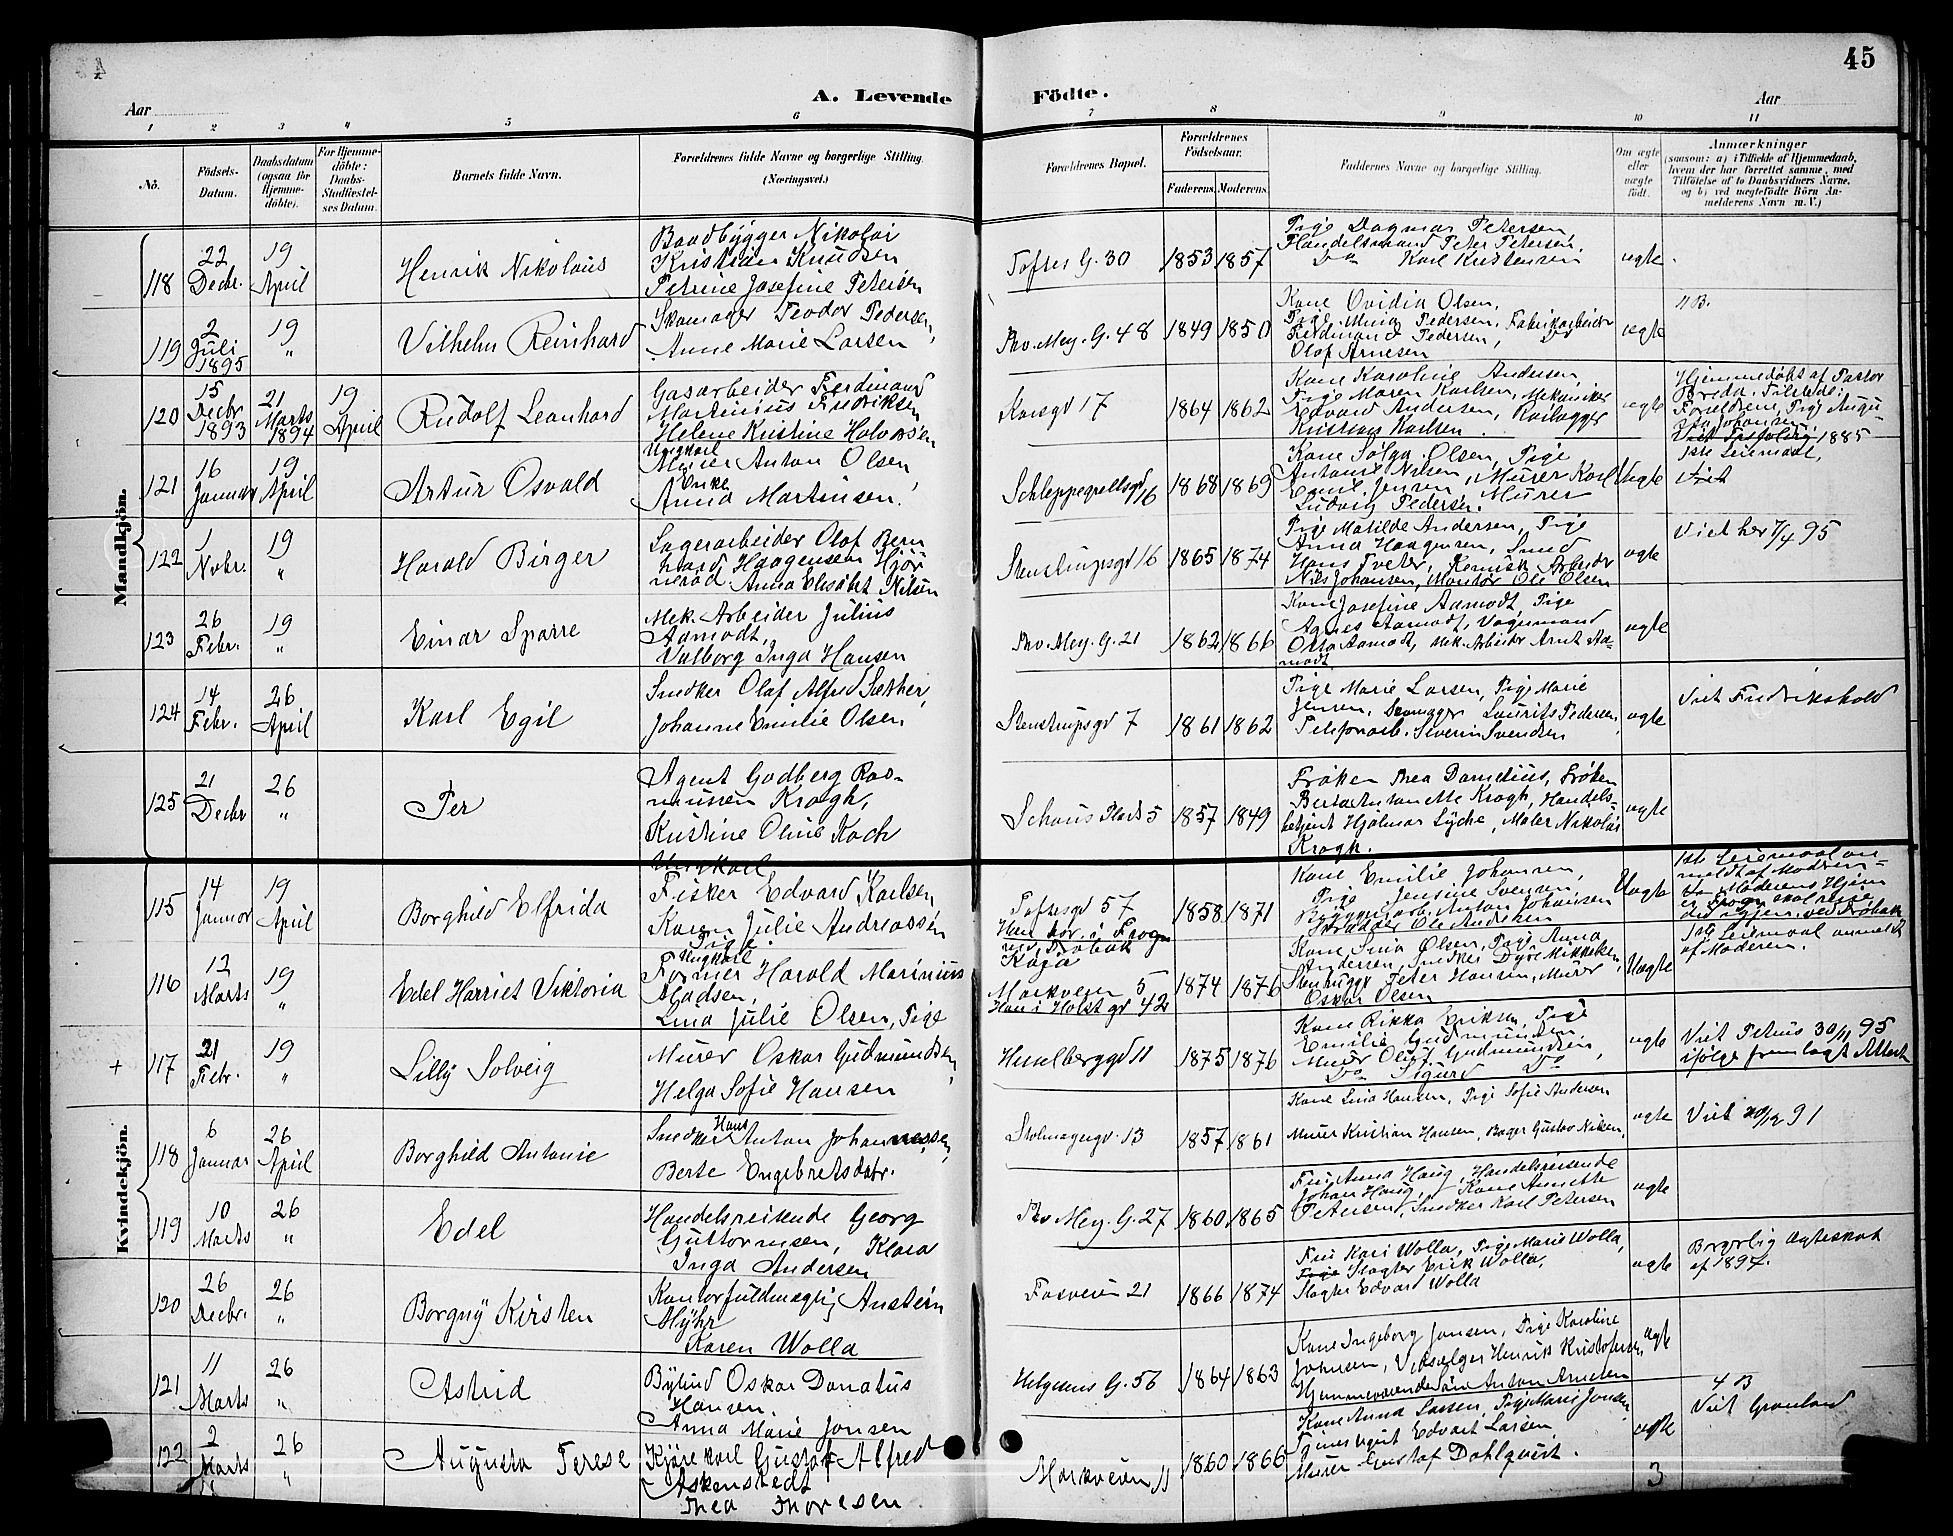 45
A. Levende Födte.
Aar
Aar
1 2 3 4 5 6 7 8 9 10 11
No.
Födsels-
Datum.
Daabsdatum
(ogsaa for
Hjemme-
döbte).
For Hjemme-
döbte:
Daabs-
Stadfæstel-
ses Datum.
Barnets fulde Navn.
Forældrenes fulde Navne og borgerlige Stilling.
(Næringsvei.)
Forældrenes Bopæl.
Forældrenes
Födselsaar.
Faderens. Moderens.
Faddernes Navne og borgerlige Stilling.
Om ægte
eller
uægte
födt.
Anmærkninger
(saasom: a) i Tilfælde af Hjemmedaab,
hvem der har forrettet samme, med
Tilföielse af to Daabsvidners Navne,
og b) ved uægtefödte Börn An-
melderens Navn m. V.)
Mandkjön.
118
22
Decbr.
19
April
Henrik Nikolaus
Baadbygger Nikolai
Kristian Knudsen
Petrine Josefine Petersen
Toftes G. 30
1853 1857
Pige Dagmar Petersen,
Handelsmand Peter Petersen,
Do Karl Kristensen
ægte
119
2
Juli
1895
19
"
Vilhelm Reinhard
Skomager Teodor Pedersen,
Anne Marie Larsen
Thv. Mey. G. 48
1849 1850
Kone Ovidia Olsen,
Pige Mina Pedersen, Fabrikarbeider
Ferdinand Pedersen, Do
Olaf Arnesen
ægte
4 B.
120
15
Decbr
1893
21
Marts
1894
19
April
Rudolf Leonhard
Gasarbeider Ferdinand
Martinius Fredriksen
Helene Kristine Halvorsen
Korsgd 17
1864 1862
Kone Karoline Andersen,
Pige Maren Karlsen, Mekaniker
Edvard Andersen,
Kristian Karlsen.
ægte
Hjemmedöbt af Pastor
Breda, Tilstede:
Forældrene, Pige Augu
sta Johansen.
1885
121
16
Januar
19
April
Artur Osvald
Ungkarl
Murer Anton Olsen,
Enke
Anna Martinsen.
Schleppegrellsgd 16
1868 1869
Kone Solga Olsen, Pige
Antonie Nilsen, Murer Karl
Emil Jensen, Murer
Ludvig Pedersen.
Uægte
1ste Leiermaal,
Viet
122
1
Novbr.
19
"
Harald Birger
Lagerarbeider Olaf Bern
hard Haagensen Hjör
neröd. Anna Elisabet Nilsen
Stenstrupsgd 16
1865 1874
Pige Matilde Andersen, Pige
Anna Haagensen, Smed
Hans Tveter, Kemisk Arbeider
Nils Johansen, Montör Ole Olsen
ægte
Viet her 7/4 95
123
26
Febr.
19
"
Einar Sparre
Mek. Arbeider Julius
Aamodt,
Valborg Inga Hansen
Thv. Mey. G. 21
1862 1866
Kone Josefine Aamodt, Pige
Agnes Aamodt, Vognmand
Otto Aamodt, Mek. Arbeider Arnt Aa-
modt
ægte
124
14
Febr.
26
April
Karl Egil
Snedker Olaf Alfred Sæther,
Johanne Emilie Olsen
Stenstrupsgd 7
1861 1862
Pige Marie Larsen, Pige Marie
Jensen, Skomager Laurits Pedersen,
Telefonarb. Severin Svendsen
ægte
Viet Fredrikshald
125
21
Decbr
26
"
Per
Agent Godberg Ras-
mussen Krogh,
Kristine Oline Koch
Schous Plads 5
1857 1849
Fröken Thea Danielius, Fröken
Berta Antonette Krogh, Handels-
betjent Hjalmar Lyche, Maler Nikolai
Krogh.
ægte
Kvindekjön.
115
14
Januar
19
April
Borghild Elfrida
Ungkarl
Fisker Edvard Karlsen,
Karen Julie Andreassen
Pige
Toftesgd 57
Han bor i Frogn
ved Dröbak
1858 1871
Kone Emilie Johansen,
Pige Jensine Svensen,
Bryggeriarb. Anton Johansen
Skrædder Ole Andersen
Uægte
1ste Leiermaal an-
meldt af Modren
116
12
Marts
19
"
Edel Harriet Viktoria
Ungkarl
Former Harald Marinius
Madsen,
Lina Julie Olsen, Pige
Markveien 5
Han i Holst gd 42
1874 1876
Kone Lina Olsen, Pige Anna
Andersen, Snedker Dyre Mikkelsen,
Stenhugger Peter Hansen, Murer
Oskar Olsen
Uægte
1ste Leiermaal anmeldt
af Moderen.
117
21
Febr.
19
"
Lilly Solveig
Murer Oskar Gudmundsen,
Helga Sofie Hansen
Hesselberggd 11
1875 1876
Kone Rikka Eriksen, Pige
Emilie Gudmundsen,
Murer Olaf Gudmundsen,
Do Sigurd Do
ægte
Viet Petrus 30/11 95
ifölge fremlagt Attest
118
6
Januar
26
April
Borghild Antonie
Snedker Hans Anton Johannessen,
Berte Engebretsdatr.
Stolmagergd. 13
1857 1861
Kone Lina Hansen, Pige Sofie Andersen
Murer Kristian Hansen, Bager Gustav Nilsen,
ægte
Viet 20/12 91
119
10
Marts
26
"
Edel
Handelsreisende Georg
Guttormsen, Klara
Inga Andersen
Thv. Mey. G. 27
1860 1865
Fru Anna Haug, Handelsreisende
Johan Haug, Kone Annette
Petersen, Snedker Karl Petersen
ægte
120
26
Decbr.
26
"
Borgny Kirsten
Kontorfuldmægtig Anstein
Myhr
Karen Wolla
Fossveien 21
1866 1874
Fru Kari Wolla, Pige Marie Wolla,
Slagter Erik Wolla,
Slagter Edvard Wolla
ægte
Borgerlig Ægteskab
af 1894.
121
11
Marts
26
"
Astrid
Bybud Oskar Donatus
Hansen.
Anna Marie Jonsen
Helgesens G. 56
1864 1863
Kone Ingeborg Jonsen, Pige Karoline
Johnsen, Vedsælger Henrik Kristofersen,
Hjemmeværende Sön Anton Arnesen
ægte
4 B
122
2
Marts
26
"
Augusta Terese
Kjörekarl Gustaf Alfred
Askenstedt
Thea Thoresen
Markveien 11
1860 1866
Kone Anna Larsen, Pige Marie Jonsen,
Edvart Larsen,
Murer Gustaf Dahlqvist.
ægte
Viet Grönland
3